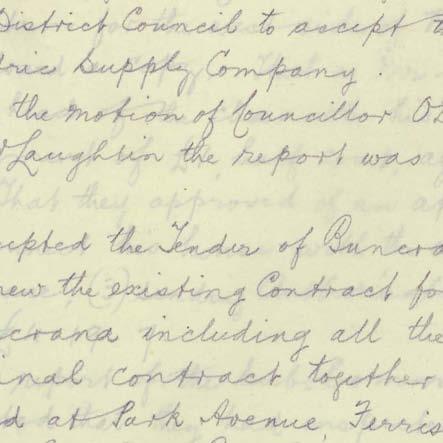 District Council to accept
tric Supply Company.
the motion of Councillor
Laughlin the report was
cepted the Tender of Buncra
new the existing Contract fo
crana including all the
inal contract together
d at Park Avenue, Ferris